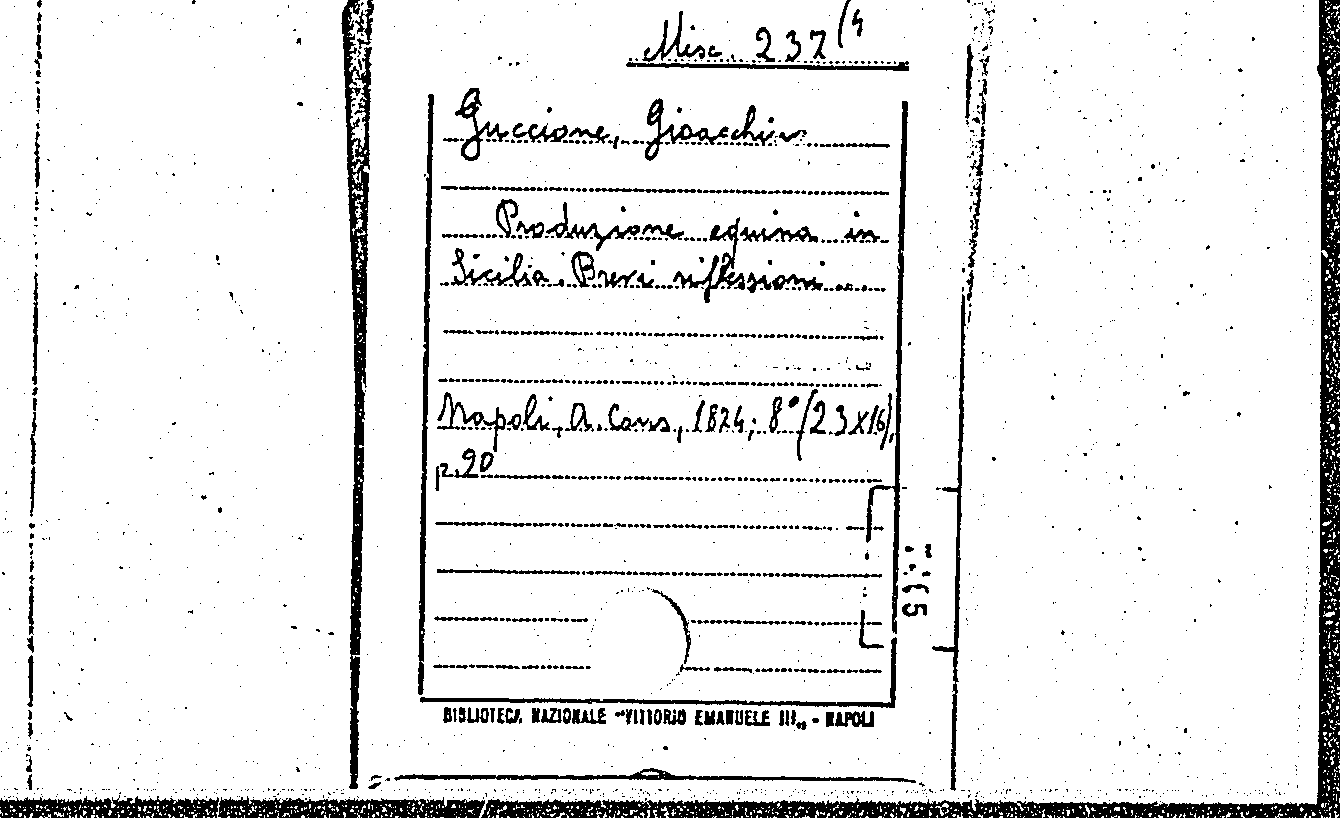 Misc. 237(4
Guccione, Gioacchino
Produzione equina in
Sicilia. Brevi riflessioni...
Napoli, A. Cons, 1824; 8° (23x16),
p. 90
BIBLIOTECA NAZIONALE "VITTORIO EMANUELE III„ - NAPOLI